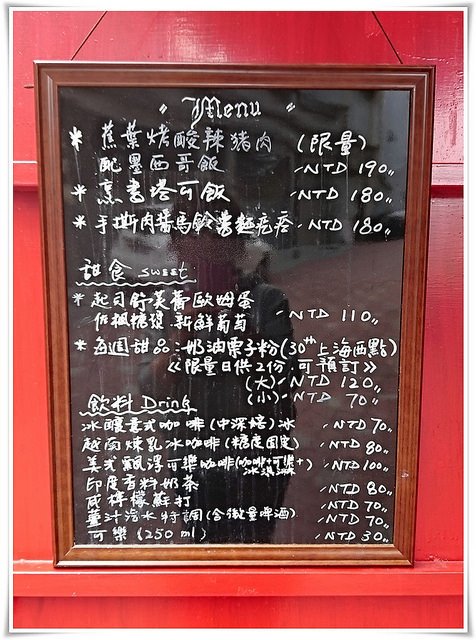 " Menu "
* 蕉葉烤酸辣豬肉 (限量)
配墨西哥飯 NTD 190
* 烹書塔可飯 NTD 180
* 手撕肉醬馬鈴薯麵疙瘩 NTD 180
甜食 sweet
* 起司舒芙蕾歐姆蛋
佐楓糖漿.新鮮葡萄 NTD 110
* 每週甜品:奶油栗子粉(30th上海西點)
《限量日供2份.可預訂》
(大) NTD 120
(小) NTD 70
飲料 Drink
冰釀意式咖啡(中深焙)冰 NTD 70
越南煉乳冰咖啡(糖度固定) NTD 80
美式飄浮可樂咖啡(咖啡+可樂+冰淇淋) NTD 100
印度香料奶茶 NTD 80
咸檸檬蘇打 NTD 70
薑汁汽水特調(含微量啤酒) NTD 70
可樂(250 ml) NTD 30